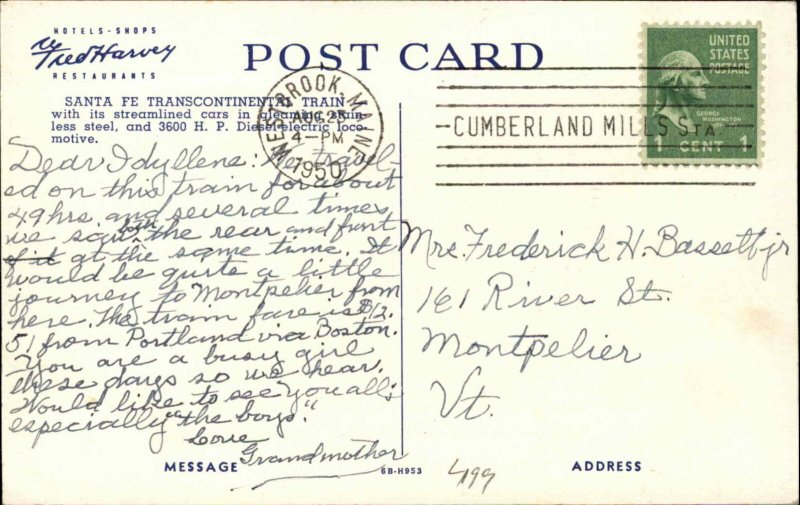 HOTELS - SHOPS
Fred Harvey
RESTAURANTS
POST CARD
SANTA FE TRANSCONTINENTAL TRAIN
with its streamlined cars in gleaming stain-
less steel, and 3600 H. P. Diesel-electric loco-
motive.
WESTBROOK, MAINE
AUG 25
4-PM
1950
CUMBERLAND MILLS STA.
UNITED
STATES
POSTAGE
GEORGE
WASHINGTON
1 CENT 1
Dear Idyllene: We travel-
ed on this train for about
49 hrs. and several times
we saw both the rear and front
of it at the same time. It
would be quite a little
journey to Montpelier from
here. The train fare is $12.
51 from Portland via Boston.
You are a busy girl
these days so we hear.
Would like to see you all &
especially "the boys".
Love
Grandmother
Mrs. Frederick H. Bassett jr
161 River St.
Montpelier
Vt.
MESSAGE
6B-H953
4199
ADDRESS